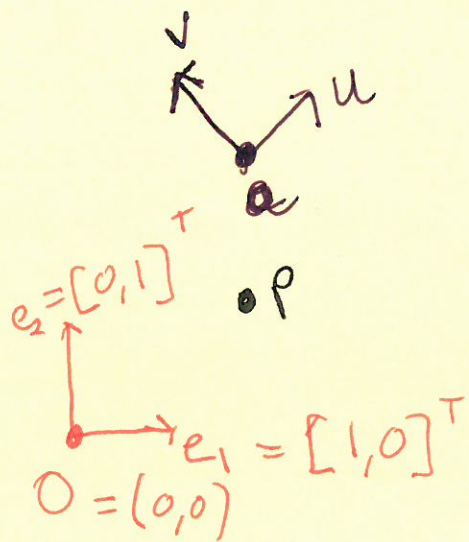 v
u
a
e₂ = [0,1]ᵀ
p
e₁ = [1,0]ᵀ
O = (0,0)